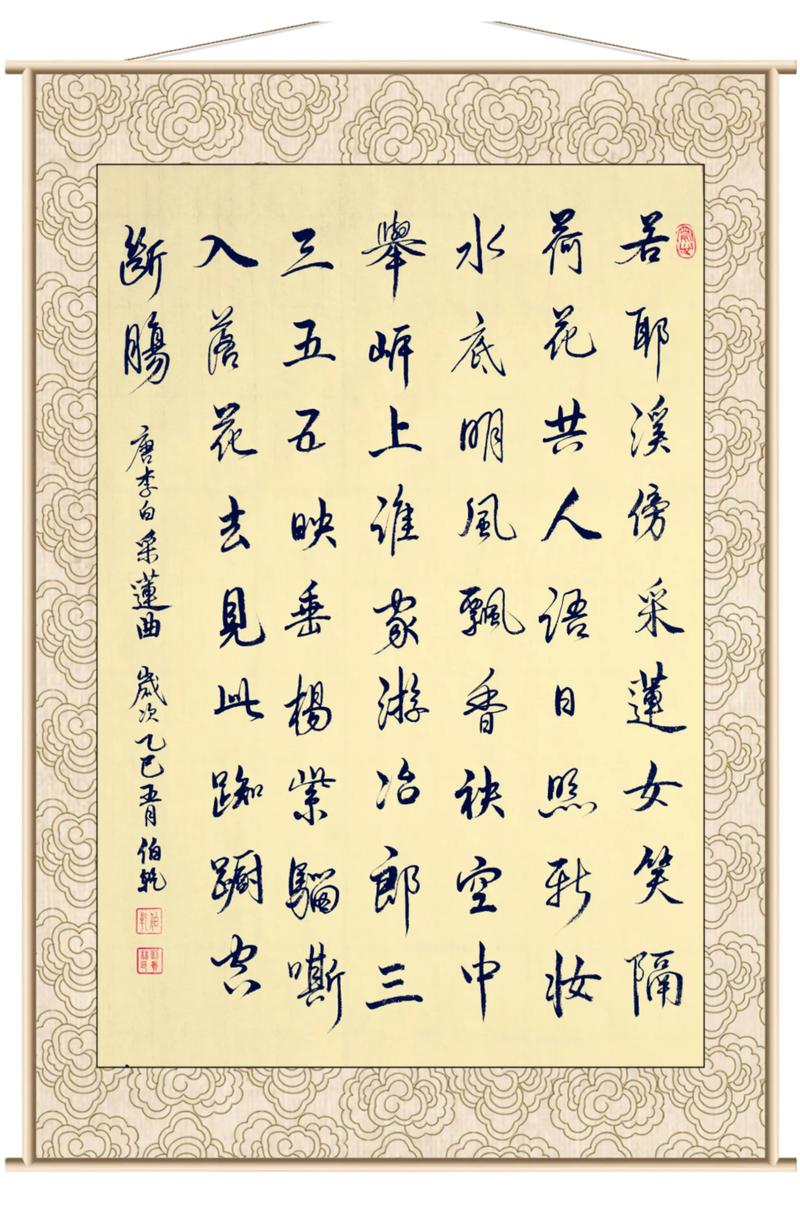 若耶溪傍采蓮女笑隔
荷花共人語日照新妝
水底明風飄香袂空中
舉岸上誰家游冶郎三
三五五映垂楊紫騮嘶
入落花去見此踟躕空
斷腸
唐李白采蓮曲 歲次乙巳五月伯乾